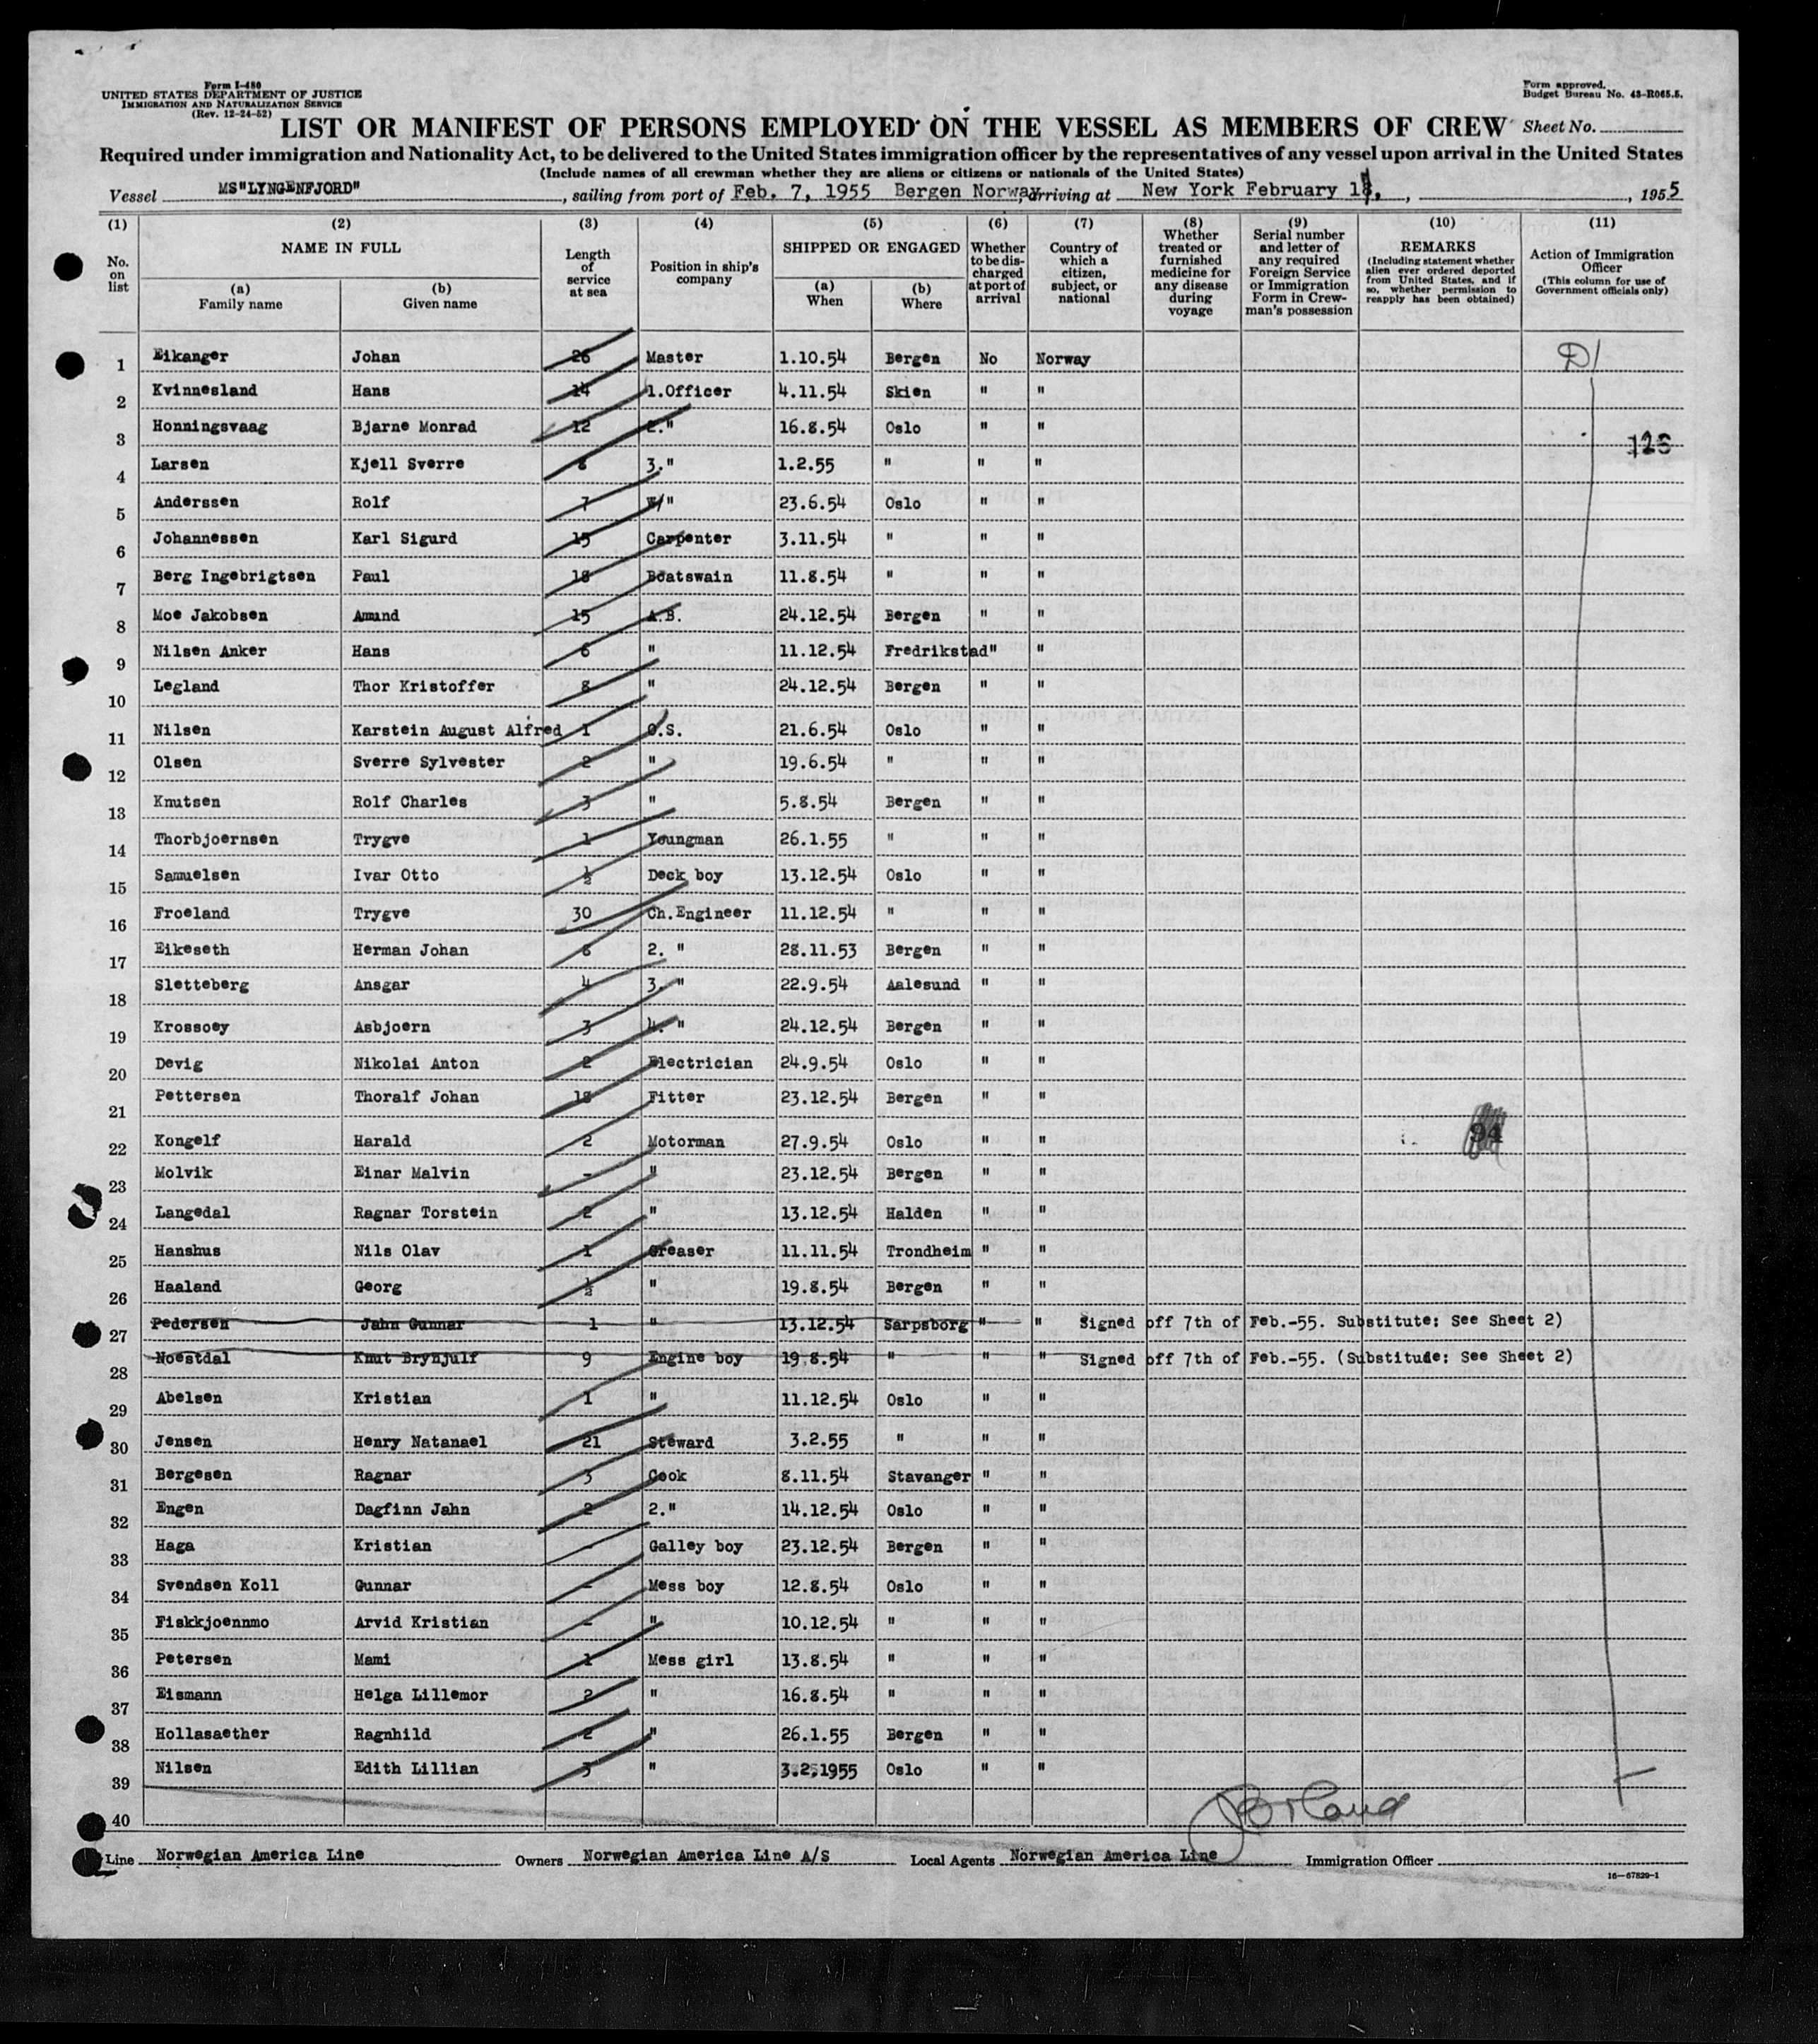 Form I-480
UNITED STATES DEPARTMENT OF JUSTICE
IMMIGRATION AND NATURALIZATION SERVICE
(Rev. 12-24-52)
Form approved.
Budget Bureau No. 43-R065.5.
LIST OR MANIFEST OF PERSONS EMPLOYED ON THE VESSEL AS MEMBERS OF CREW Sheet No.
Required under immigration and Nationality Act, to be delivered to the United States immigration officer by the representatives of any vessel upon arrival in the United States
(Include names of all crewman whether they are aliens or citizens or nationals of the United States)
Vessel MS"LYNGENFJORD", sailing from port of Feb. 7, 1955 Bergen Norway, arriving at New York February 18, , 1955
(1) (2) (3) (4) (5) (6) (7) (8) (9) (10) (11)
No. on list
NAME IN FULL
(a) Family name
(b) Given name
Length of service at sea
Position in ship's company
SHIPPED OR ENGAGED
(a) When
(b) Where
Whether to be discharged at port of arrival
Country of which a citizen, subject, or national
Whether treated or furnished medicine for any disease during voyage
Serial number and letter of any required Foreign Service or Immigration Form in Crewman's possession
REMARKS
(Including statement whether alien ever ordered deported from United States, and if so, whether permission to reapply has been obtained)
Action of Immigration Officer
(This column for use of Government officials only)
1 Eikanger Johan 26 Master 1.10.54 Bergen No Norway D
2 Kvinnesland Hans 14 1.Officer 4.11.54 Skien " "
3 Honningsvaag Bjarne Monrad 12 2." 16.8.54 Oslo " "
126
4 Larsen Kjell Sverre 8 3." 1.2.55 " " "
5 Anderssen Rolf 7 W/" 23.6.54 Oslo " "
6 Johannessen Karl Sigurd 15 Carpenter 3.11.54 " " "
7 Berg Ingebrigtsen Paul 18 Boatswain 11.8.54 " " "
8 Moe Jakobsen Amund 15 A.B. 24.12.54 Bergen " "
9 Nilsen Anker Hans 6 " 11.12.54 Fredrikstad" "
10 Legland Thor Kristoffer 8 " 24.12.54 Bergen " "
11 Nilsen Karstein August Alfred 1 O.S. 21.6.54 Oslo " "
12 Olsen Sverre Sylvester 2 " 19.6.54 " " "
13 Knutsen Rolf Charles 3 " 5.8.54 Bergen " "
14 Thorbjoernsen Trygve 1 Youngman 26.1.55 " " "
15 Samuelsen Ivar Otto ½ Deck boy 13.12.54 Oslo " "
16 Froeland Trygve 30 Ch.Engineer 11.12.54 " " "
17 Eikeseth Herman Johan 8 2. " 28.11.53 Bergen " "
18 Sletteberg Ansgar 4 3. " 22.9.54 Aalesund " "
19 Krossoey Asbjoern 3 4. " 24.12.54 Bergen " "
20 Devig Nikolai Anton 2 Electrician 24.9.54 Oslo " "
21 Pettersen Thoralf Johan 18 Fitter 23.12.54 Bergen " "
94
22 Kongelf Harald 2 Motorman 27.9.54 Oslo " "
23 Molvik Einar Malvin - " 23.12.54 Bergen " "
24 Langedal Ragnar Torstein 2 " 13.12.54 Halden " "
25 Hanshus Nils Olav 1 Greaser 11.11.54 Trondheim " "
26 Haaland Georg ½ " 19.8.54 Bergen " "
27 Pedersen Jahn Gunnar 1 " 13.12.54 Sarpsborg " " Signed off 7th of Feb.-55. Substitute: See Sheet 2)
28 Noestdal Knut Brynjulf 9 Engine boy 19.8.54 " " " Signed off 7th of Feb.-55. (Substitude: See Sheet 2)
29 Abelsen Kristian 1 " 11.12.54 Oslo " "
30 Jensen Henry Natanael 21 Steward 3.2.55 " " "
31 Bergesen Ragnar 3 Cook 8.11.54 Stavanger " "
32 Engen Dagfinn Jahn 2 2." 14.12.54 Oslo " "
33 Haga Kristian - Galley boy 23.12.54 Bergen " "
34 Svendsen Koll Gunnar - Mess boy 12.8.54 Oslo " "
35 Fiskkjoennmo Arvid Kristian - " 10.12.54 " " "
36 Petersen Mami 1 Mess girl 13.8.54 " " "
37 Eismann Helga Lillemor 2 " 16.8.54 " " "
38 Hollasaether Ragnhild 2 " 26.1.55 Bergen " "
39 Nilsen Edith Lillian 3 " 3.2.1955 Oslo " "
40
Line Norwegian America Line Owners Norwegian America Line A/S Local Agents Norwegian America Line Immigration Officer
16-67829-1